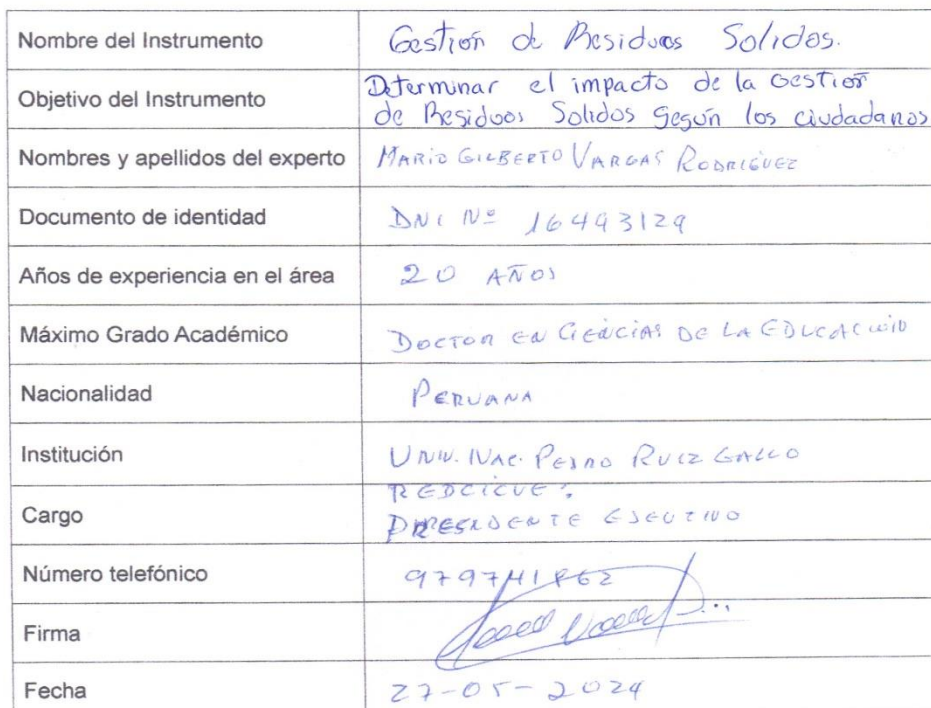 Nombre del Instrumento Gestión de Residuos Solidos.
Objetivo del Instrumento Determinar el impacto de la Gestión
de Residuos Solidos Según los ciudadanos
Nombres y apellidos del experto MARIO GILBERTO VARGAS RODRIGUEZ
Documento de identidad DNI Nº 16493129
Años de experiencia en el área 20 AÑOS
Máximo Grado Académico DOCTOR EN CIENCIAS DE LA EDUCACION
Nacionalidad PERUANA
Institución UNIV. NAC. PEDRO RUIZ GALLO
REDCICUE:
Cargo PRESIDENTE EJECUTIVO
Número telefónico
Firma
Fecha 27-05-2024